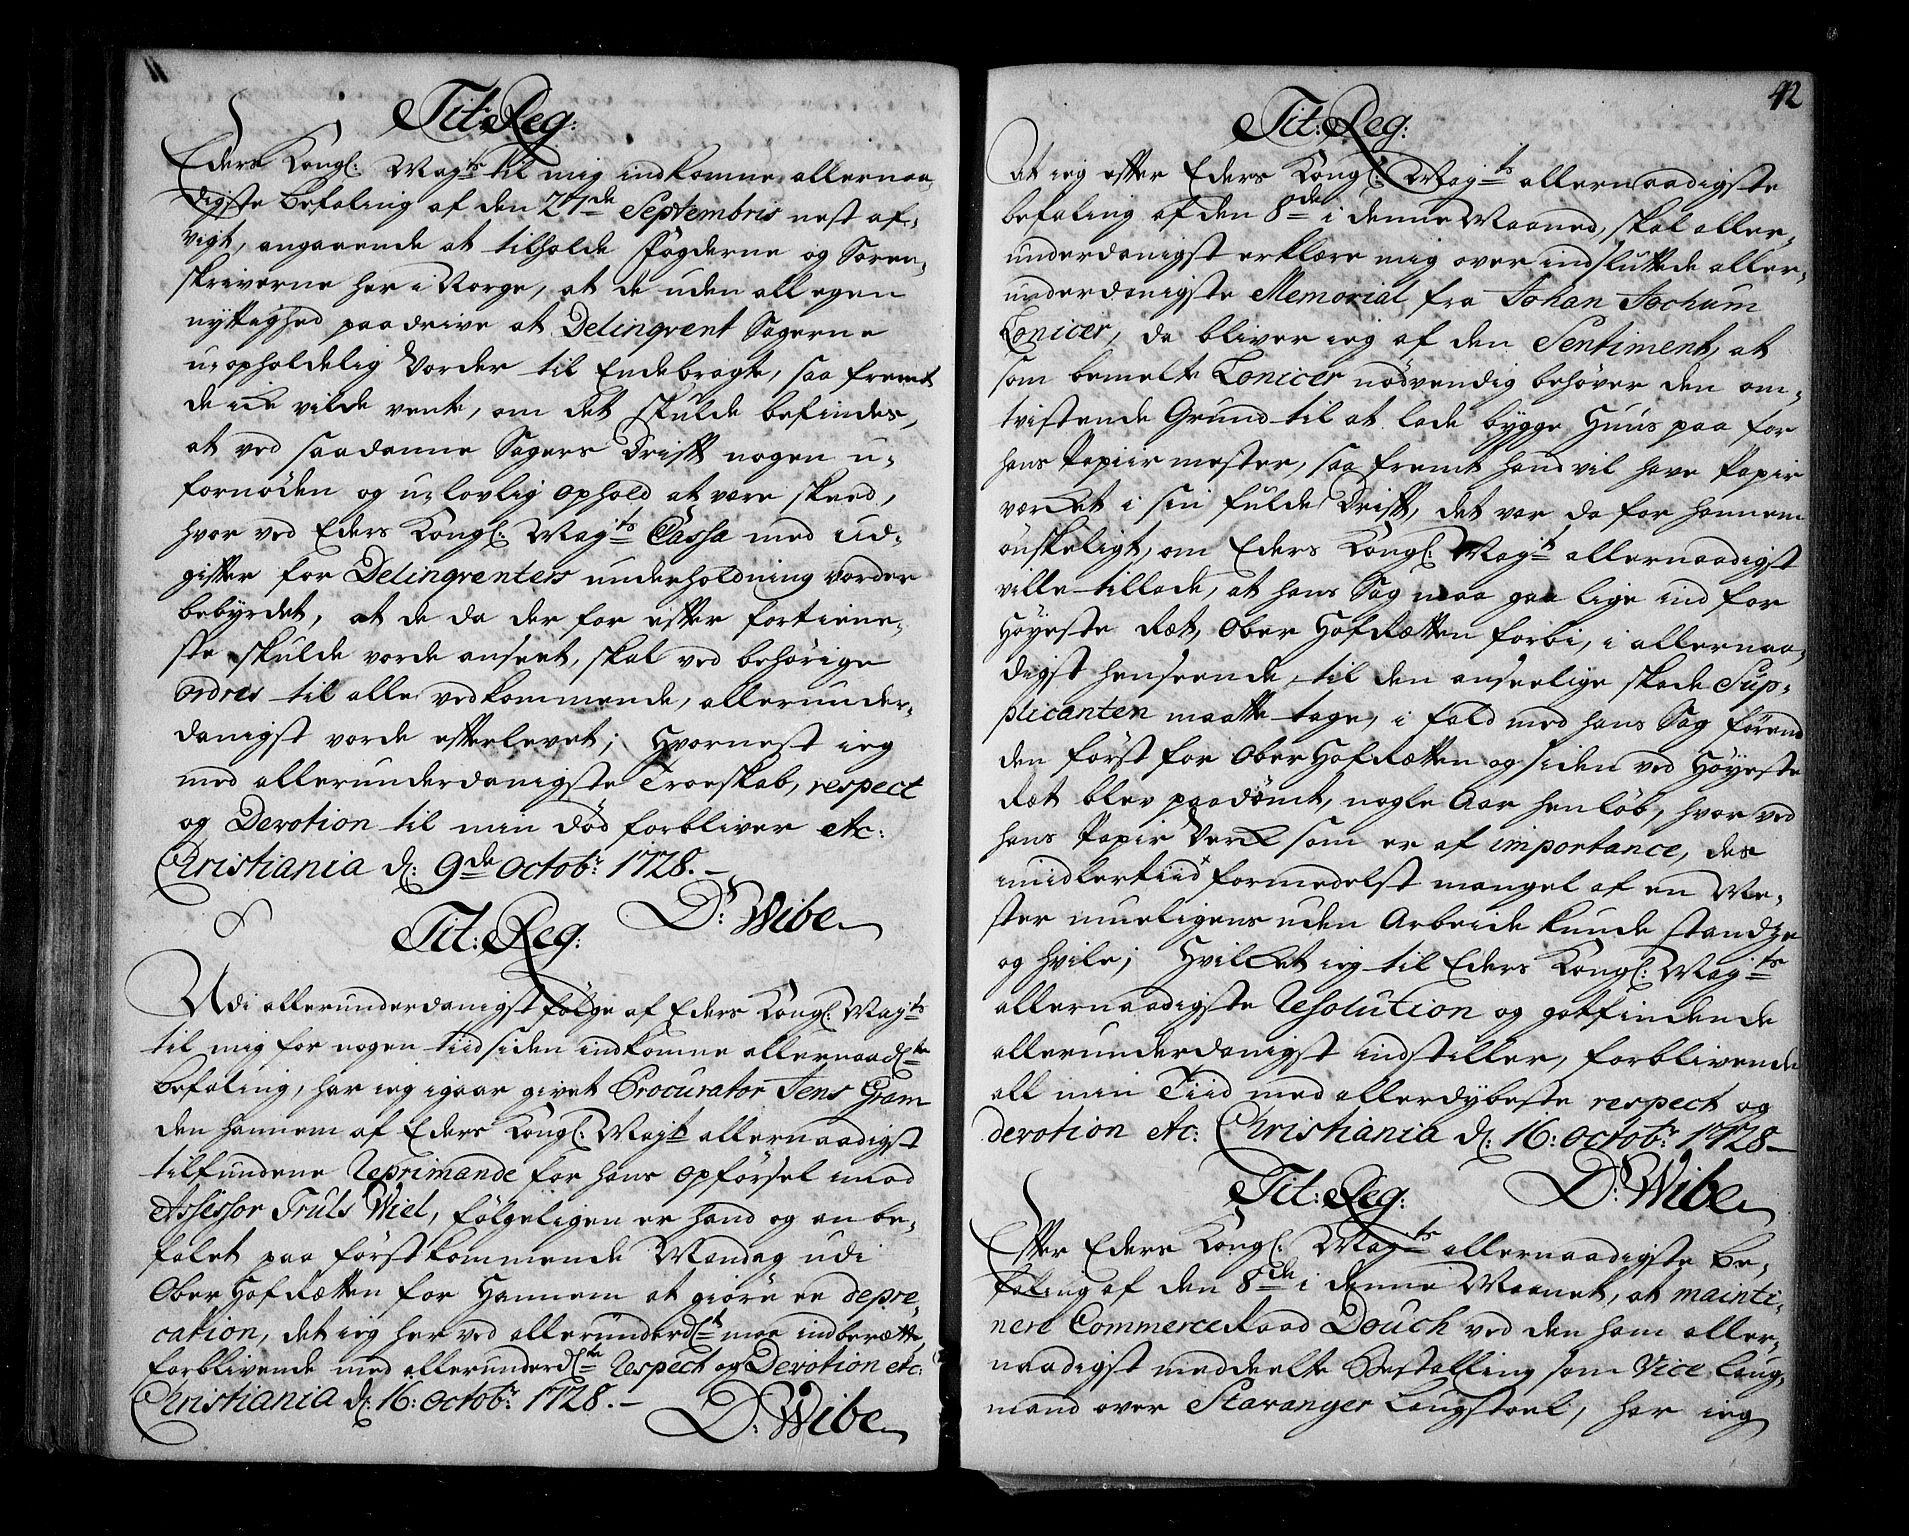 Tit: Reg:
Eders Kongl: Maj:ts til mig indkomne allernaa-
digste befaling af den 27de Septembris nest af-
vigt, angaaende at tilholde Fogderne og Soren-
skriverne her i Norge, at de uden all egen
nyttighed paadrive at Delinqvent Sagerne
u-opholdelig vorder til Endebragte, saa fremt
de icke vilde vente, om det skulde befindes,
at ved saadanne Sagers drift nogen u-
fornøden og u-lovlig ophold at være skeed,
hvor ved Eders Kongl: Maj:ts Cassa med ud-
gifter for Delinqventers underholdning vorder
bebyrdet, at de da der for efter fortiene-
ste skulde vorde anseet, skal ved behørige
ordres til alle vedkommende, allerunder-
danigst vorde efterlevet; Hvornest ieg
med allerunderdanigste Troeskab, respect
og Devotion til min død forbliver etc:
Christiania d: 9de Octob:r 1728.-
D: Wibe
Tit: Reg:
Udi allerunderdanigst følge af Eders Kongl: Maj:ts
til mig for nogen tiid siden indkomne allernaad:ste
befaling, har ieg igaar givet Procurator Jens Gram
den hannem af Eders Kongl: Maj:t allernaadigst
tilfundene Reprimande for hans opførsel imod
Assessor Truls Wiel, følgeligen er hand og anbe-
falet paa førstkommende Mandag udi
Ober HofRætten for Hannem at giøre en depre-
cation, det ieg her ved allerunderd:t maa indberette,
forblivende med allerunderd:ste Respect og Devotion etc:
Christiania d: 16: Octob:r 1728.-
D: Wibe
42
Tit: Reg:
At ieg efter Eders Kongl: Maj:ts allernaadigste
befaling af den 8de i denne Maaned, skal aller-
underdanigst erklære mig over indsluttede aller-
underdanigste Memorial fra Johan Jochum
Lonicer, da bliver ieg af den Sentiment, at
som bemelte Lonicer nødvendig behøver den om-
tvistende Grund til at lade bygge Huus paa for
hans Papiir mester, saa fremt hand vil have Papir
vercket i sin fulde Drift, det var da for hannem
ønskeligt, om Eders Kongl: Maj:t allernaadigst
ville tillade, at hans Sag maa gaa lige ind for
Høyeste Ræt, Ober HofRætten forbi, i allernaa-
digst henseende til den anseelige skade Sup-
plicanten maatte tage, i fald med hans Sag førend
den først for Ober HofRætten og siden ved Høyeste
Ræt blev paadømt, nogle Aar henløb, hvor ved
hans Papir Verck som er af importance, des
imidlertiid formedelst mangel af en Me-
ster mueligens uden Arbeide kunde standze
og hvile; Hvilcket ieg til Eders Kongl: Maj:ts
allernaadigste Resolution og gotfindende
allerunderdanigst indstiller, forblivende
all min Tiid med allerdybeste respect og
devotion etc: Christiania d: 16: Octob:r 1728-
D: Wibe
Tit: Reg:
Efter Eders Kongl: Maj:ts allernaadigste be-
faling af den 8de i denne Maanet, at mainti-
nere CommerceRaad Douch ved den ham aller-
naadigst meddeelte Bestalling som Vice Laug-
mand over Stavanger Laugstoel, har ieg